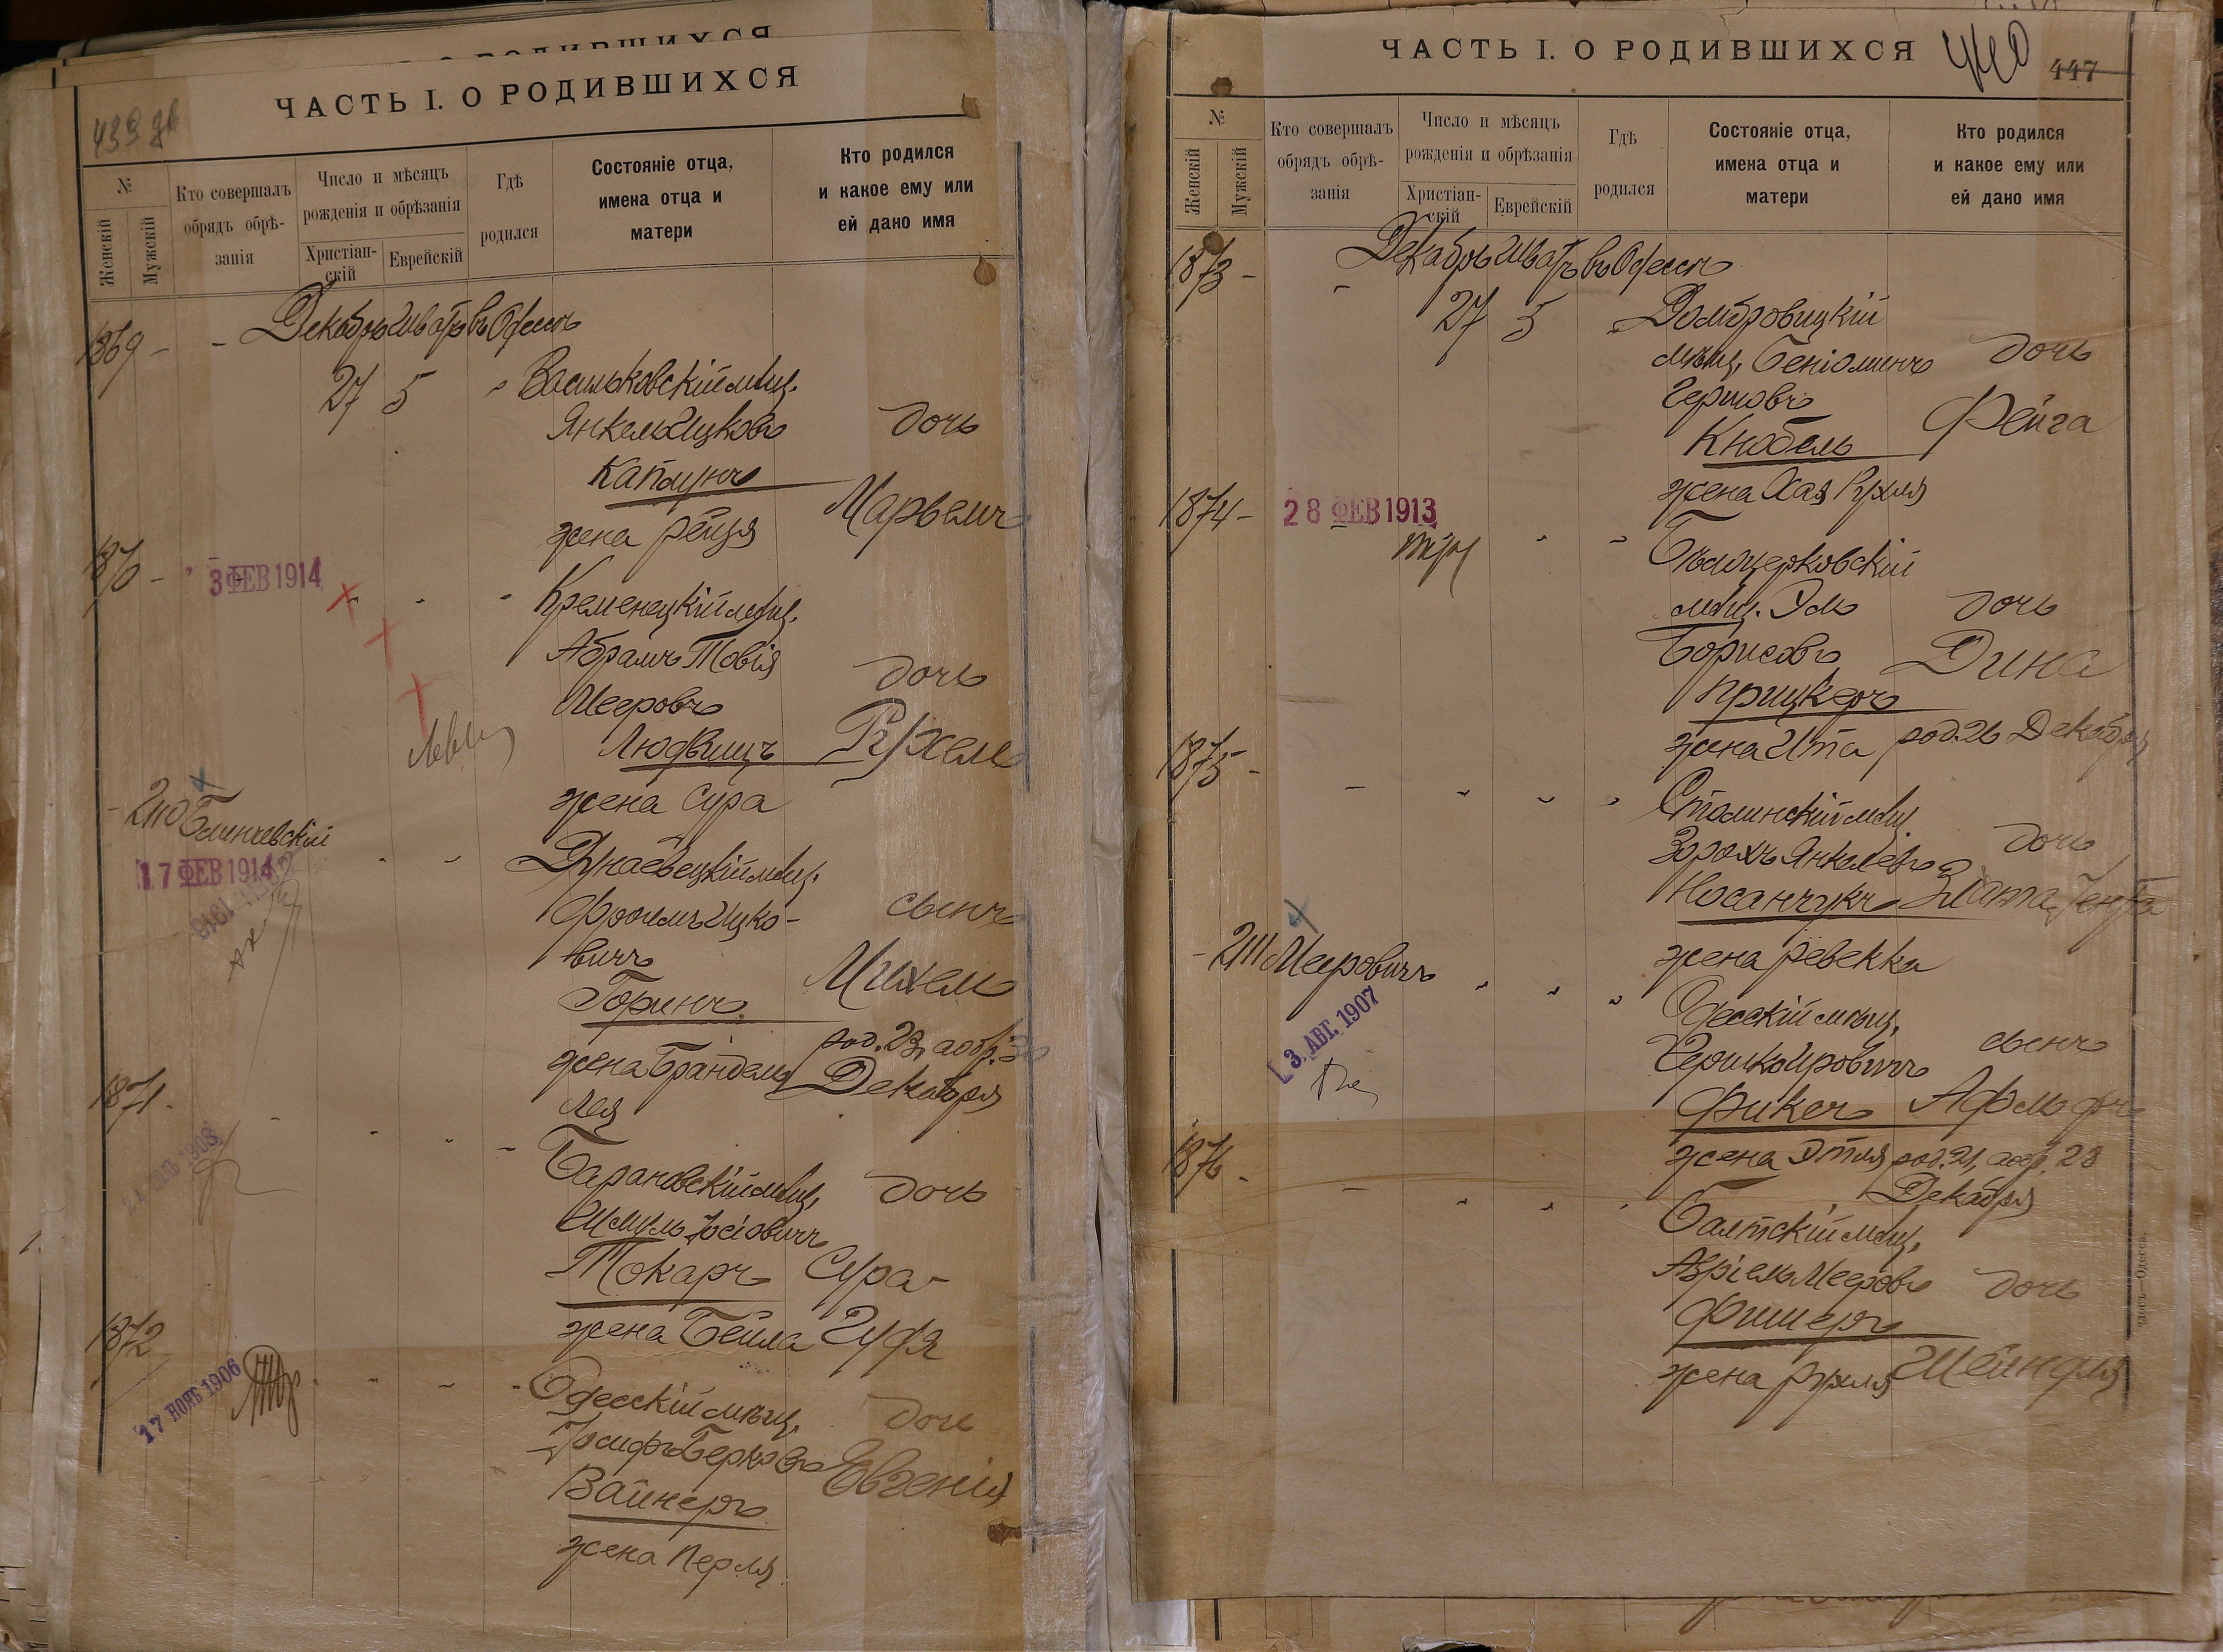 ЧАСТЬ I. О РОДИВШИХСЯ
439 об
№
Женскій
Мужскій
Кто совершалъ
обрядъ обрѣ-
занія
Число и мѣсяцъ
рожденія и обрѣзанія
Христіан-
скій
Еврейскій
Гдѣ
родился
Состояніе отца,
имена отца и
матери
Кто родился
и какое ему или
ей дано имя
Декабрь Шватъ въ Одессѣ
1869 -
27 5
Васильковскій мѣщ.
Янкель Ицковъ
Каплунъ
жена Рейзя
дочь
Марьемъ
1870 -
3 ФЕВ 1914
Кременецкій мѣщ.
Абрамъ Товія
Мееровъ
Людвицъ
жена Сура
дочь
Рухель
Блинчевскій
17 ФЕВ 1914
Дунаевецкій мѣщ.
Фроимъ Ицко-
вичъ
Горинъ
жена Брандель
Лея
сынъ
Михель
род. 23, а обр. 30
Декабря
1871.
Барановскій мѣщ.
Шмуль Іосіовичъ
Токарь
жена Бейла
дочь
Сура-
1872
17 НОЯБ 1906
Одесскій мѣщ.
Іосифъ Берковъ
Вайнеръ
жена Перля
дочь
Евгенія
ЧАСТЬ I. О РОДИВШИХСЯ
440
447
№
Женскій
Мужскій
Кто совершалъ
обрядъ обрѣ-
занія
Число и мѣсяцъ
рожденія и обрѣзанія
Христіан-
скій
Еврейскій
Гдѣ
родился
Состояніе отца,
имена отца и
матери
Кто родился
и какое ему или
ей дано имя
Декабрь Шватъ въ Одессѣ
1873 -
27 5
Домбровицкій
мѣщ. Беніоминъ
Гершовъ
Кнобель
жена Хая Рухля
дочь
Фейга
1874 -
28 ФЕВ 1913
Бѣлоцерковскій
мѣщ. Эль
Борисовъ
Прицкеръ
жена Ита
дочь
Дина
род. 26 Декабря
1875 -
Столинскій мѣщ.
Зорохъ Янкелевъ
Носанчукъ
жена Ревекка
дочь
Злата Јента
- 211 Мееровичъ
3. АВГ. 1907
Одесскій мѣщ.
Фикеръ
жена Этля
сынъ
Адольфъ
род. 21, а обр. 28
Декабря
1876 -
Балтскій мѣщ.
Азріель Мееровъ
Фишеръ
жена Рухля
дочь
Шейндля